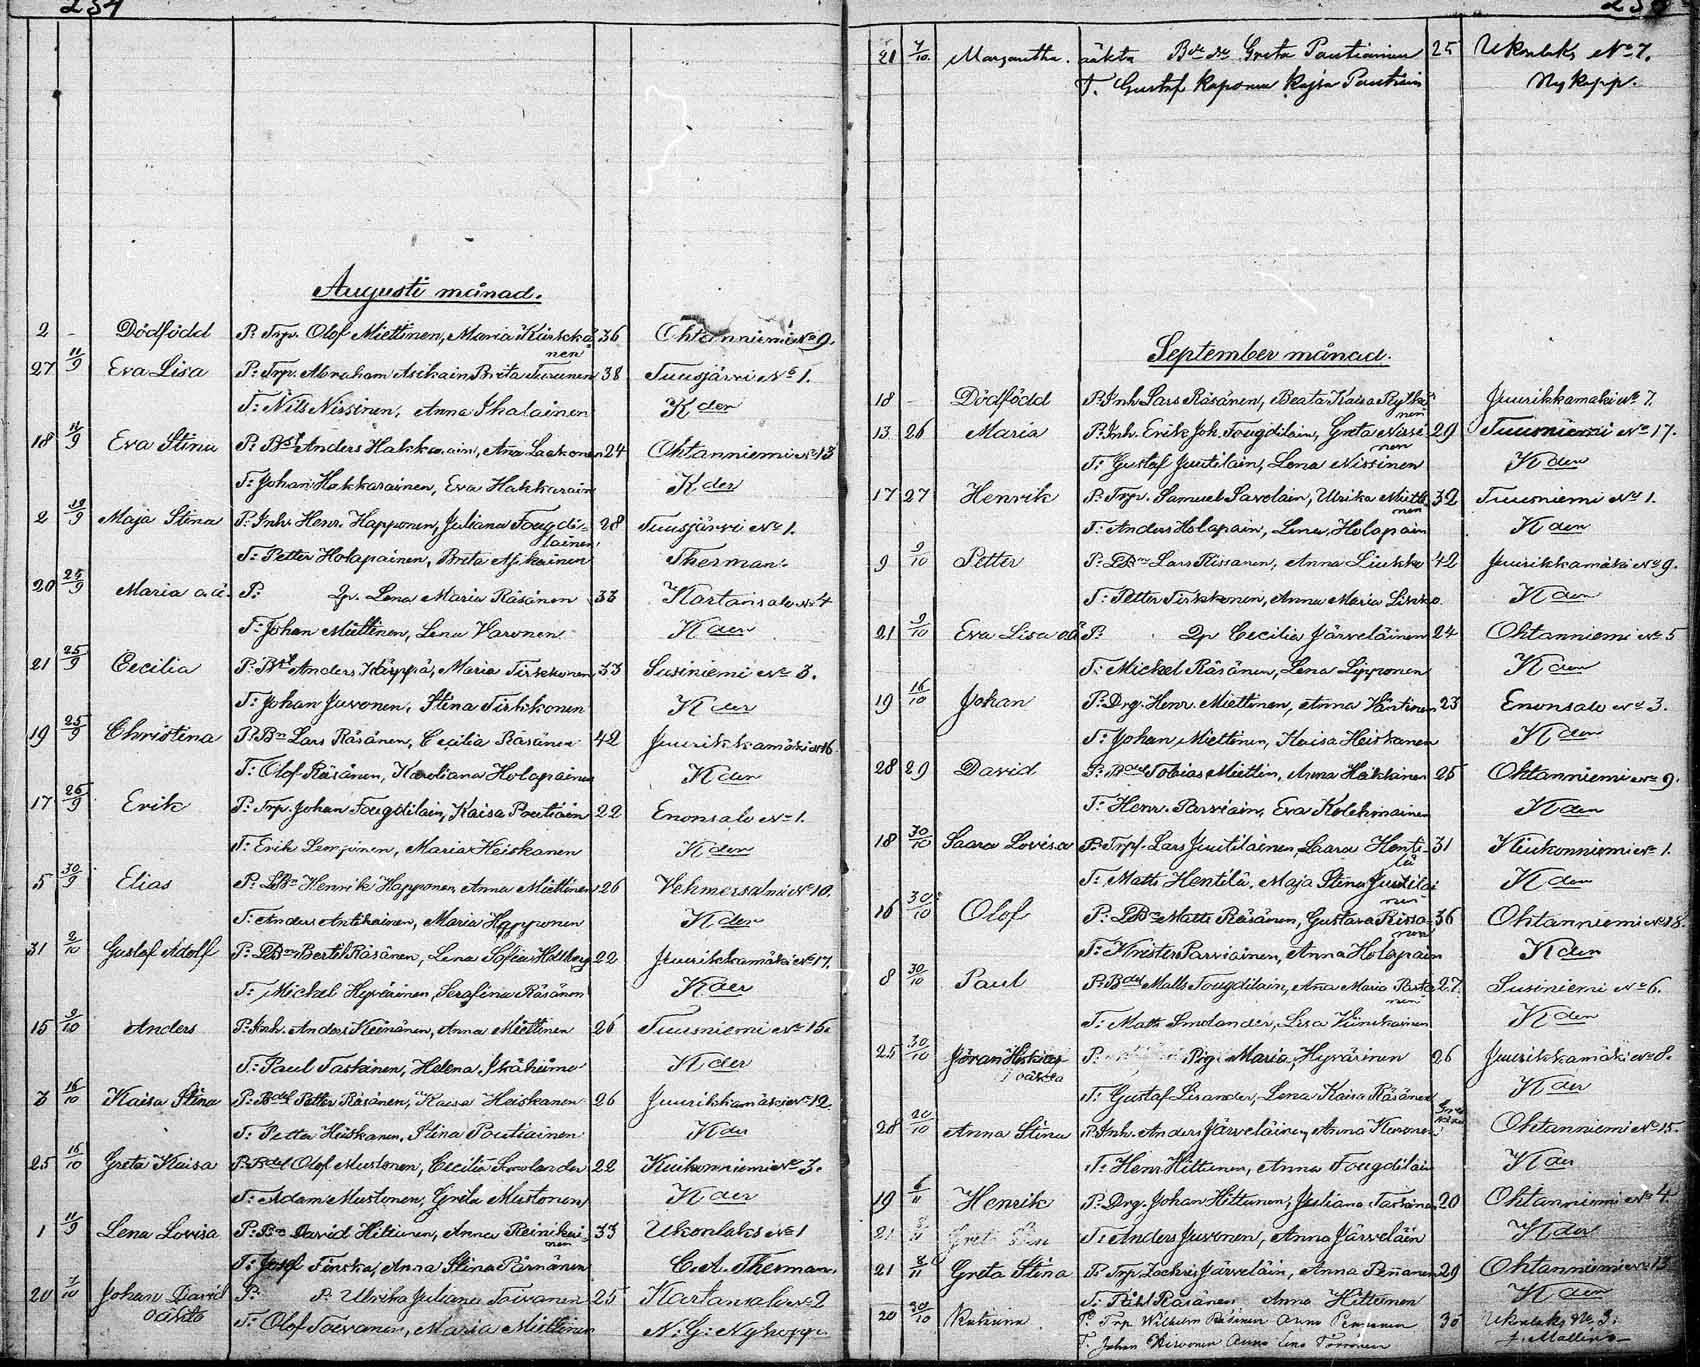 234
Augusti månad.
2 - Dödfödd P: Trp. Olof Miettinen, Maria Kärkkä 36 Ohtanniemi No 9.
nen
27 11/9 Eva Lisa P: Trp. Abraham Asikain, Brita Turunen 38 Tuusjärvi No 1.
T: Nils Nissinen, Anna Ihalainen K der
18 11/9 Eva Stina P: Anders Hakkarain, Ana Laakonen 24 Ohtanniemi No 13
T: Johan Hakkarainen, Eva Hakkarain K der
2 19/9 Maja Stina P: Inh. Henr. Happonen, Juliana Fougdi- 28 Tuusjärvi No 1.
lainen
T: Petter Holapainen, Brita Asikainen Therman.
20 25/9 Maria o.ä. P: Qp. Lena Maria Räsänen 33 Kartansalo No 4
T: Johan Miettinen, Lena Varonen K der
21 25/9 Cecilia P: Anders Käppä, Maria Tirkkonen 33 Susiniemi No 3.
T: Johan Juvonen, Stina Tirkkonen K der
19 25/9 Christina P: Bn Lars Räsänen, Cecilia Räsänen 42 Juurikkamäki No 16
T: Olof Räsänen, Karoliana Holapainen K der
17 26/9 Erik P: Trp. Johan Fougdilain, Kaisa Poutiain 22 Enonsalo No 1.
T: Erik Leppinen, Maria Heiskanen K der
5 30/9 Elias P: LBn Henrik Happonen, Anna Miettinen 26 Vehmersalmi No 10.
T: Anders Antikainen, Maria Happonen K der
31 2/10 Gustof Adolf P: LBn Bertil Räsänen, Lena Sofia Hallberg 22 Juurikkamäki No 17.
T: Mickel Hyvärinen, Serafina Räsänen K der
15 9/10 Anders P: Inh. Anders Keinänen, Anna Miettinen 26 Tuusniemi No 15.
T: Paul Taskinen, Helena Ikäheimo K der
3 16/10 Kaisa Stina P: Bdel Petter Räsänen, Kaisa Heiskanen 26 Juurikkamäki No 12.
T: Petter Heiskanen, Stina Poutiainen K der
25 16/10 Greta Kaisa P: Bdel Olof Mustonen, Cecilia Smolander 22 Kuikonniemi No 3.
T: Adam Mustonen, Greta Mustonen K der
1 11/9 Lena Lovisa P: Bn David Hittunen, Anna Reinikai- 33 Ukonlaks No 1
nen
T: Josef Finska, Anna Stina Pärnänen C. A. Therman.
20 7/10 Johan David P: P. Ulrika Juliana Toivanen 25 Kartansalo No 2
oäkta
T: Olof Toivanen, Maria Miettinen N: G: Nykopp
21 7/10 Margaretha. oäkta Bde dr Greta Pautiainen 25 Ukonlaks No 7.
T. Gustaf Kaponen Kajsa Pautiain Nykopp.
September månad.
18 - Dödfödd P: Inh Lars Räsänen, Beata Kaisa Rytkö Juurikkamäki No 7.
nen
13 26 Maria P: Inh. Erik Joh. Fougdilain, Greta Nissi 29 Tuusniemi No 17.
nen
T: Gustaf Juutilain, Lena Nissinen K der
17 27 Henrik P: Trp. Samuel Savolain, Ulrika Miett 32 Tuusniemi No 1.
nen
T: Anders Holapain, Lena Holopain K der
9 9/10 Petter P: LBn Lars Rissanen, Anna Liukko 42 Juurikkamäki No 9.
T: Petter Tirkkonen, Anna Maria Liukko K der
21 9/10 Eva Lisa oä P: Qp Cecilia Järveläinen 24 Ohtanniemi No 5
T: Mickel Räsänen, Lena Lipponen K der
19 16/10 Johan P: Drg. Henr. Miettinen, Anna Väntinen 23 Enonsalo No 3.
T: Johan Miettinen, Kaisa Heiskanen K der
28 29 David P: Bdel Tobias Miettin, Anna Häkkinen 25 Ohtanniemi No 9.
T: Henr. Parviain, Eva Kolehmainen K der
18 30/10 Saara Lovisa P: Trpf. Lars Juutilainen, Saara Henti- 31 Kuikonniemi No 1.
lä
T: Matts Hentilä, Maja Stina Juutilai K der
nen
16 30/10 Olof P: LBn Matts Räsänen, Gustava Rissa- 36 Ohtanniemi No 18.
nen
T: Krister Parviainen, Anna Holopain K der
8 30/10 Paul P: Bdel Matts Fougdilain, Ana Maria Parta 27. Susiniemi No 6.
nen
T: Matts Smolander, Lisa K der
25 30/10 Jöran Hiskias P: Pig. Maria Hyvärinen 26 Juurikkamäki No 8.
oäkta
T: Gustaf Lisander, Lena Kaisa Räsänen K der
28 20/10 Anna Stina P: Inh. Anders Järveläinen, Anna Ohtanniemi No 15.
T: Henr Hittunen, Anna Fougdilain K der
19 6/11 Henrik P: Drg. Johan Hittunen, Juliana Taskinen 20 Ohtanniemi No 4.
21 T: Anders Juvonen, Anna Järveläin K der
21 8/11 Greta Stina P: Trp Zachris Järveläin, Anna Pennanen 29 Ohtanniemi No 13
T: Påhl Räsänen Anna Hittunen K der
20 30/10 Katrina P: Trp Wilhelm Räsänen Anna Pennanen 30 Ukonlaks No 3.
T. Johan Hirvonen Anna Lena Toivonen J. Mallin